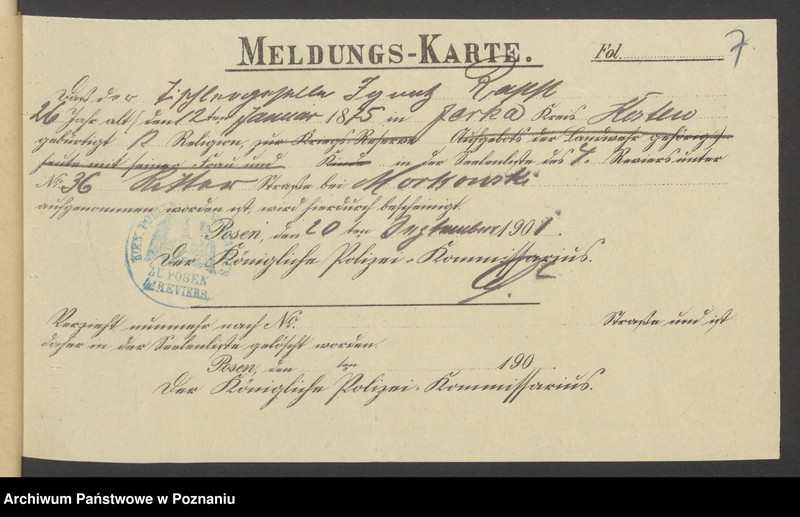 MELDUNGS-KARTE.
Fol. 7
Daß der Tischlergeselle Ignatz Rapp
26 Jahr alt, den 12ten Januar 1875 in Jerka Kreis Kosten
gebürtigt Religion, zur Kriegs-Reserve Aufgebots der Landwehr gehörig,
heute mit seiner Frau und Kinde in der Seelenliste des 4. Reviers unter
No. 36 Ritter Straße bei Morkowski
aufgenommen worden ist, wird hierdurch bescheinigt.
Posen, den 20 ten September 1901.
Der Königliche Polizei-Kommissarius.
ZU POSEN
4. REVIERS
Verzieht nunmehr nach No. Straße und ist
daher in der Seelenliste gelöscht worden.
Posen, den ten 190
Der Königliche Polizei-Kommissarius.
Archiwum Państwowe w Poznaniu